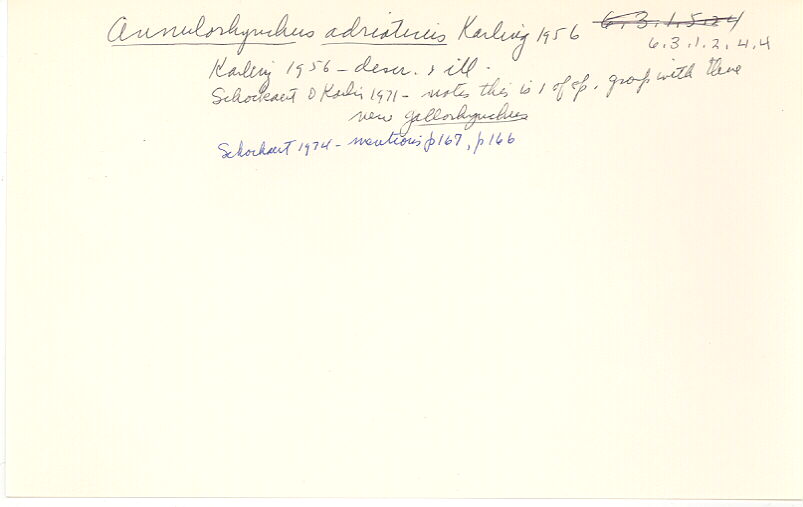 Annulorhynchus adriaticus Karling 1956 6.3.1.5.24
6.3.1.2.4.4
Karling 1956 - descr. & ill.
Schockaert & Karlin 1971 - notes this is 1 of sp. group with
new gallorhynchus
Schockaert 1974 - mentions p167, p166